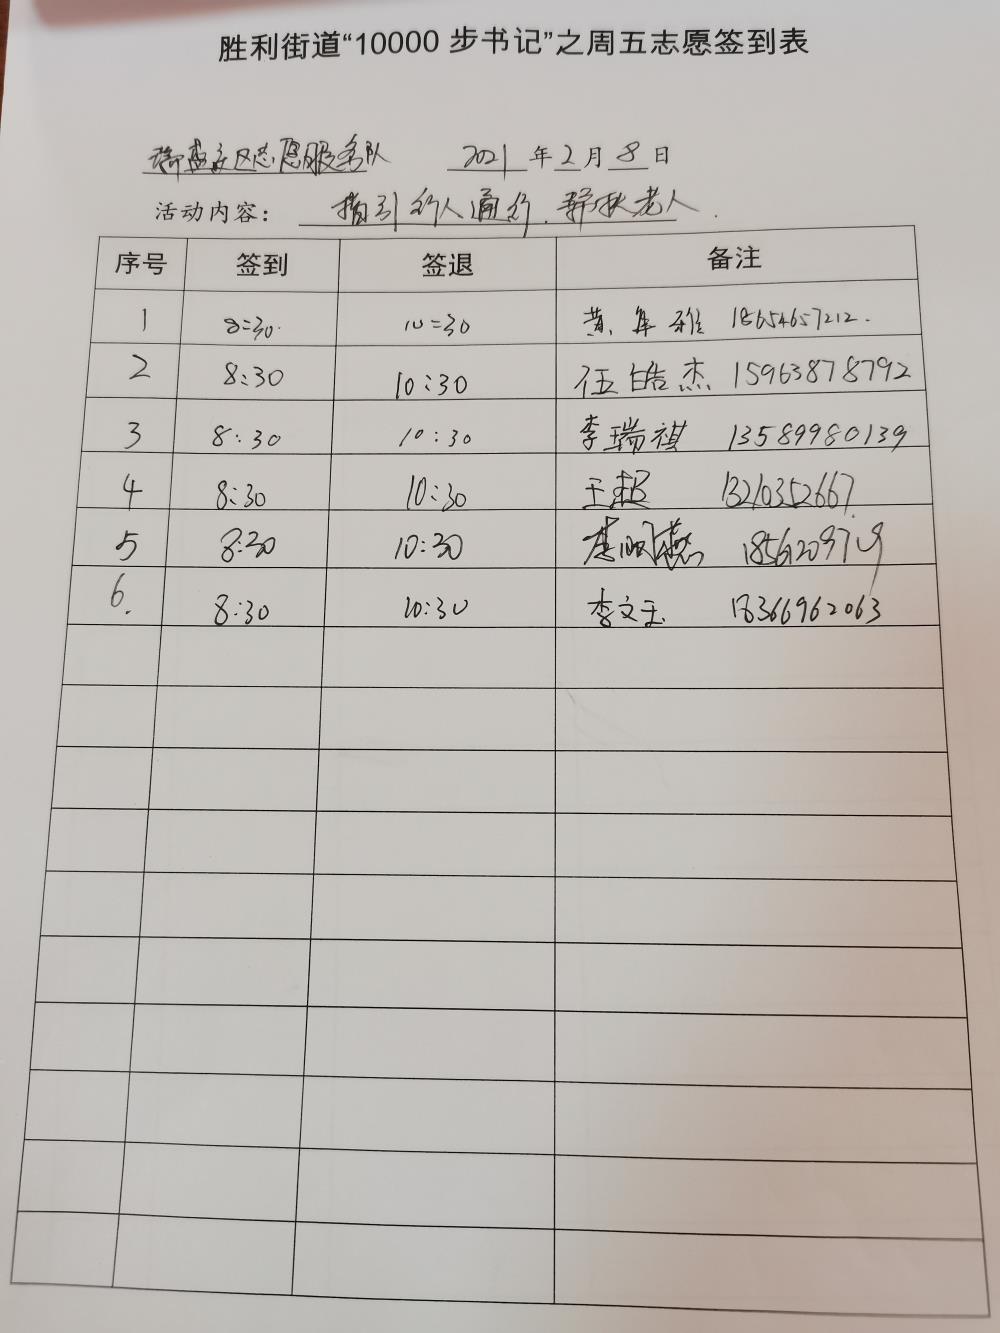 胜利街道“10000 步书记”之周五志愿签到表
社区志愿服务队 2021 年 2 月 8 日
活动内容： 指引行人通行、搀扶老人.
序号 签到 签退 备注
1 8:30 10:30 黄 雅 18654657212.
2 8:30 10:30 伍皓杰 15963878792
3 8:30 10:30 李瑞祺 13589980139
4 8:30 10:30 王超 13210352667
5 8:30 10:30
6. 8:30 10:30 李文玉 18366962063